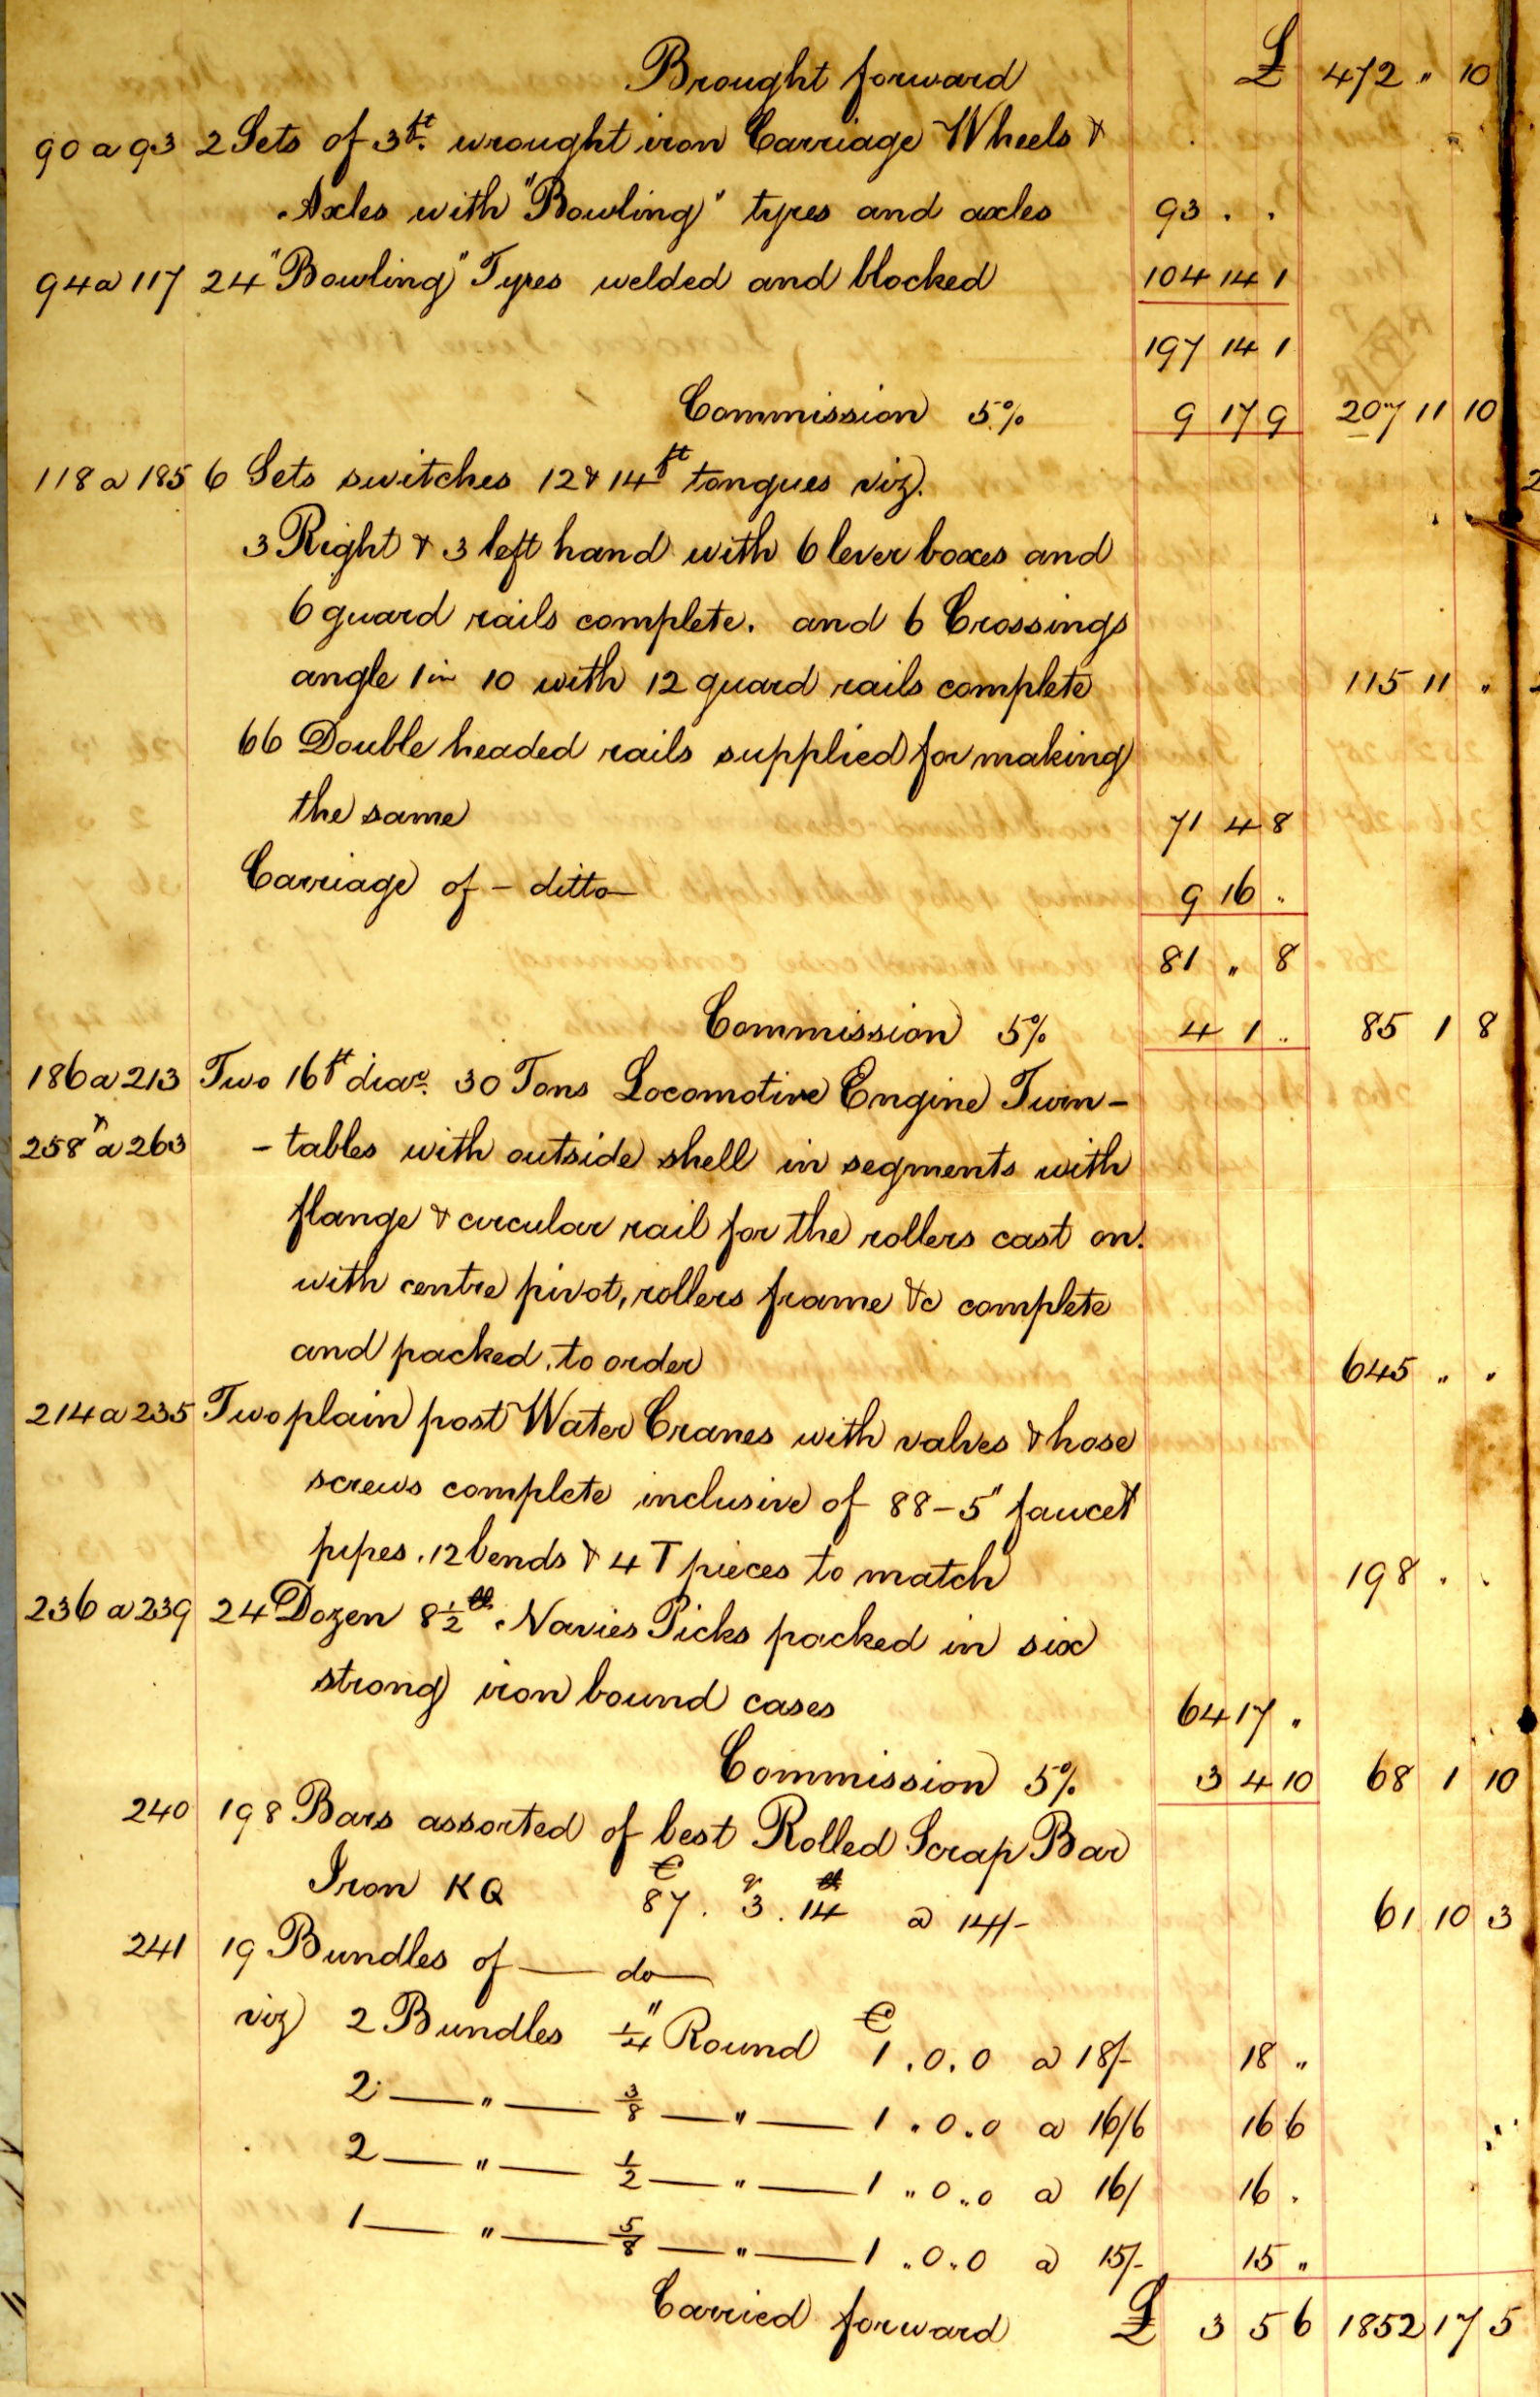 Brought forward £ 472 " 10
90 a 93 2 Sets of 3ft. wrought iron Carriage Wheels &
Axles with "Bowling" tyres and axles 93 . .
94 a 117 24 "Bowling" Tyres welded and blocked 104 14 1
197 14 1
Commission 5% 9 17 9 207 11 10
118 a 185 6 Sets switches 12 & 14ft tongues viz.
3 Right & 3 left hand with 6 lever boxes and
6 guard rails complete. and 6 Crossings
angle 1 in 10 with 12 guard rails complete 115 11 "
66 Double headed rails supplied for making
the same 71 4 8
Carriage of - ditto 9 16 .
81 " 8
Commission 5% 4 1 .. 85 1 8
186 a 213 Two 16ft diar. 30 Tons Locomotive Engine Turn -
258 a 263 - tables with outside shell in segments with
flange & circular rail for the rollers cast on.
with centre pivot, rollers frame &c complete
and packed, to order 645 " "
214 a 235 Two plain post Water Cranes with valves & hose
screws complete inclusive of 88 - 5" faucet
pipes . 12 bends & 4 T pieces to match 198 . .
236 a 239 24 Dozen 8½ lb. Navies Picks packed in six
strong iron bound cases 64 17 "
Commission 5% 3 4 10 68 1 10
240 198 Bars assorted of best Rolled Scrap Bar
Iron KQ C 87 . q 3 . lb 14 a 14/- 61 10 3
241 19 Bundles of — do —
viz 2 Bundles ¼" Round C 1 . 0 . 0 a 18/- 18 "
2 — " — ⅜ — " — 1 . 0 . 0 a 16/6 16 6
2 — " — ½ — " — 1 " 0 " 0 a 16/ 16 .
1 — " — ⅝ — " — 1 " 0 . 0 a 15/- 15 "
Carried forward £ 3 5 6 1852 17 5